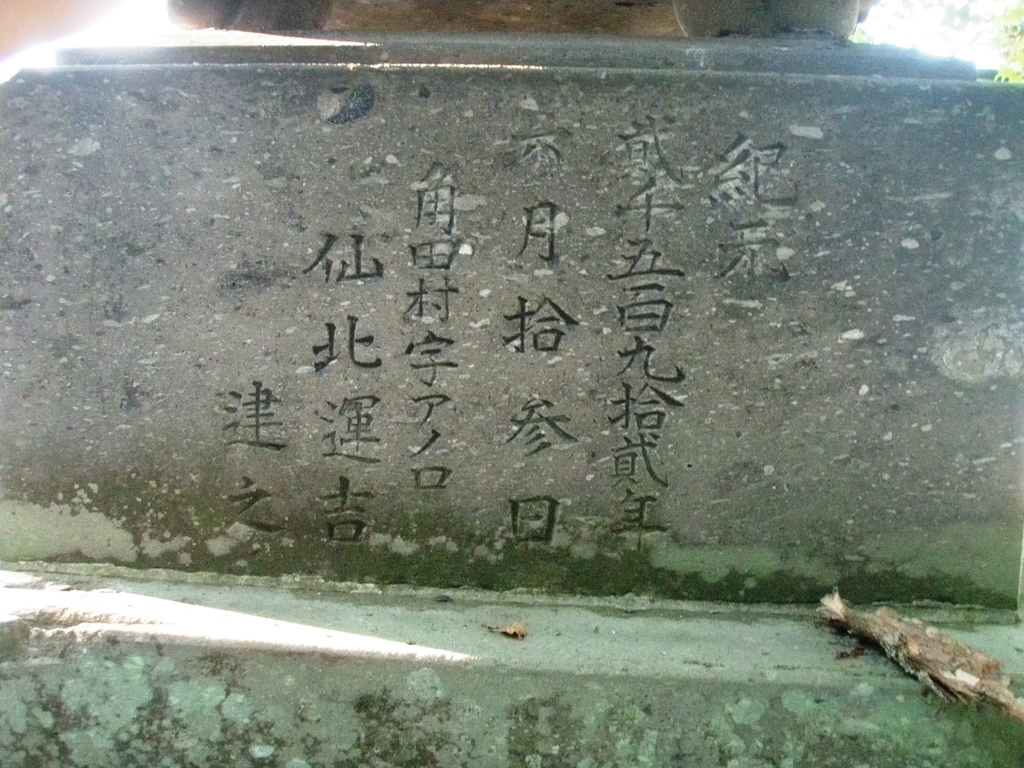 紀元
貳千五百九拾貳年
六月拾参日
角田村字アノロ
仙北運吉
建之